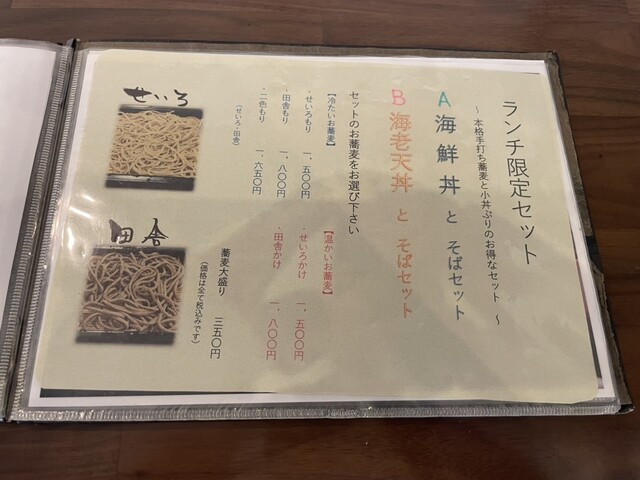 ランチ限定セット
～ 本格手打ち蕎麦と小丼ぶりのお得なセット ～
A 海鮮丼 と そばセット
B 海老天丼 と そばセット
セットのお蕎麦をお選び下さい
【冷たいお蕎麦】
・せいろもり 一、五〇〇円
・田舎もり 一、八〇〇円
・二色もり 一、六五〇円
(せいろ・田舎)
【温かいお蕎麦】
・せいろかけ 一、五〇〇円
・田舎かけ 一、八〇〇円
蕎麦大盛り 三五〇円
(価格は全て税込みです)
せいろ
田舎